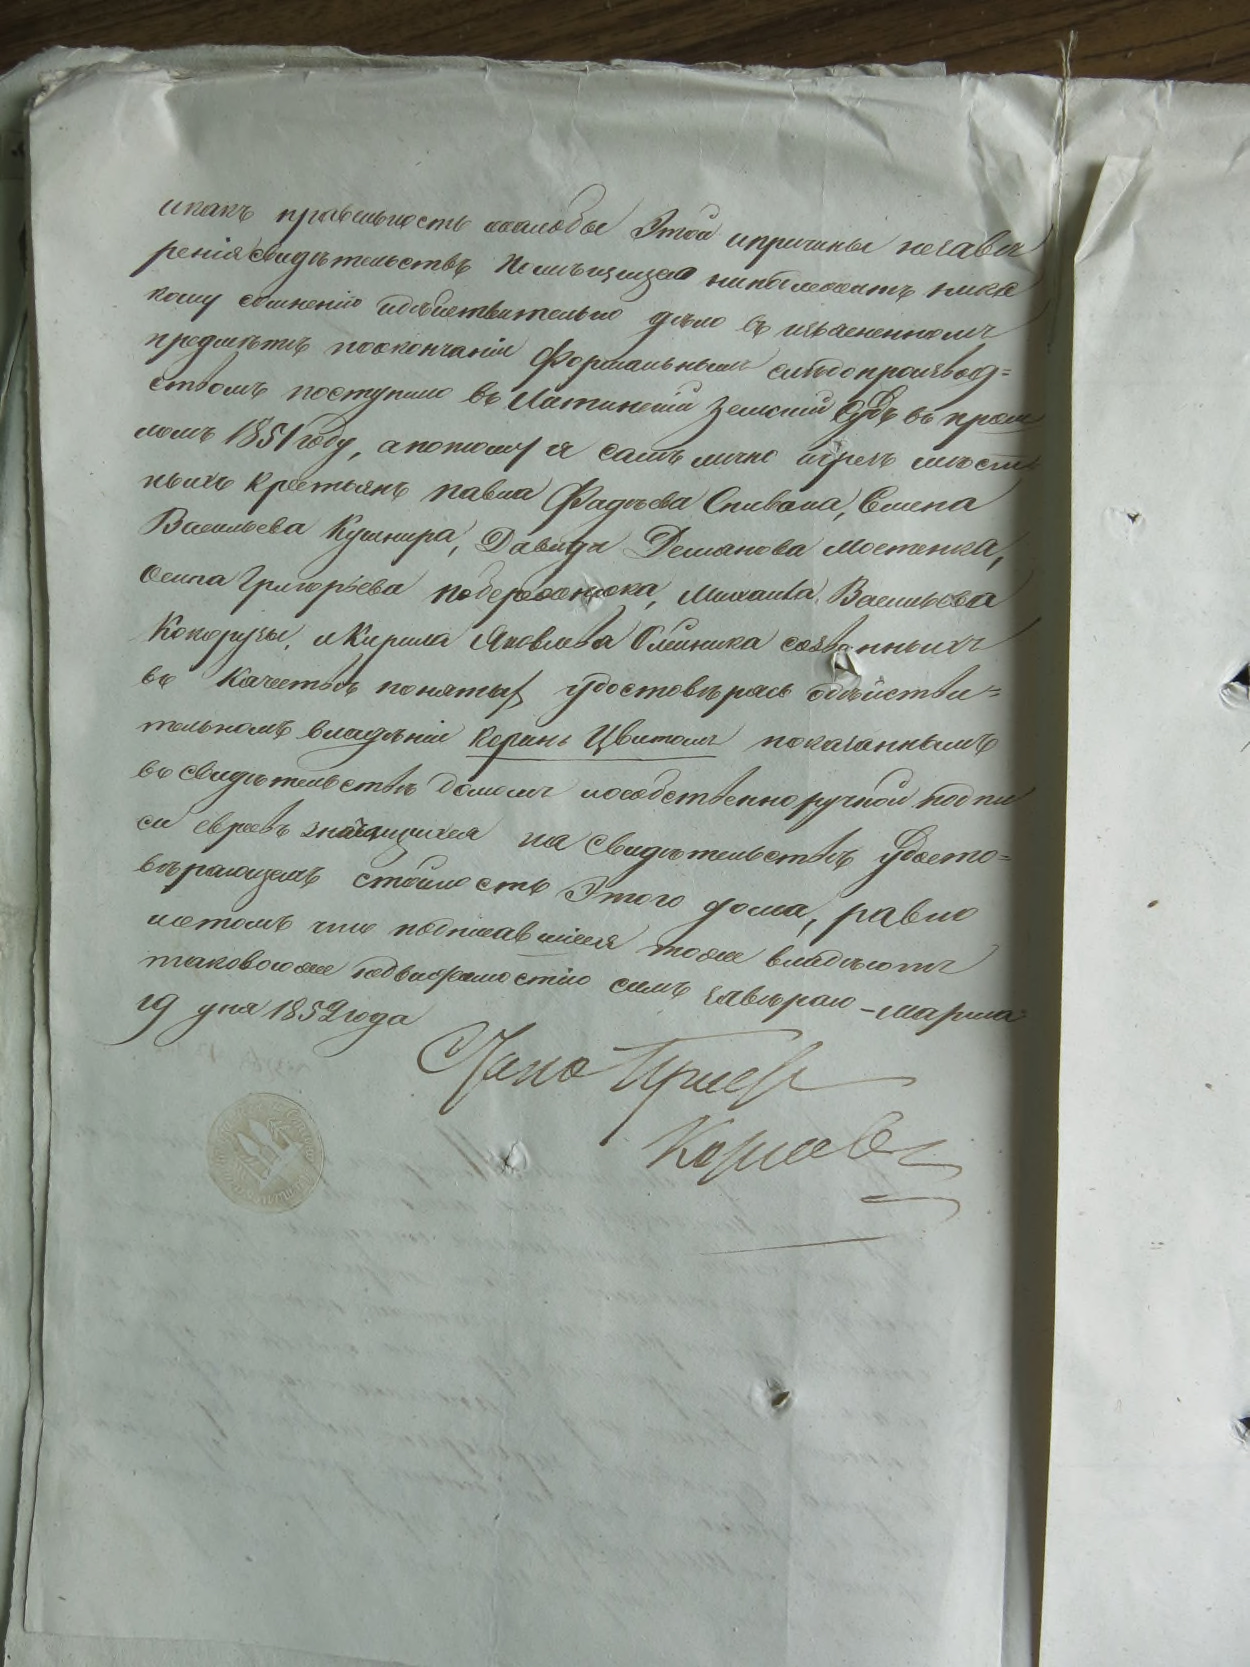 икакъ правельность жалобы этой ипричины незавѣ
ренія свидѣтельствъ Помѣщицею неподлежатъ ника
кому сомненію идѣйствительно дѣло въ изъясненномъ
предмѣтѣ поокончаніи формальнымъ слѣдопроизвод=
ствомъ поступило въ Земскій Судъ въ прош
ломъ 1851 году, апотому я самъ лично чрезъ мѣст
ныхъ крестьянъ павла Фадѣева Спивака, Семена
Васильева Кушнира, Давида Демянова Мостенка,
Осипа Григорьева побережнюка, Михаила Васильева
Кокорузы, и Кирила Яковлева Олейника созванныхъ
въ Качествѣ понятых удостовѣрясь одѣйстви=
тельномъ владѣніи Керинъ Цвитомъ показаннымъ
въ свидѣтельствѣ домомъ исобственноручной подпи
си евреевъ значащихся на свидѣтельствѣ Удосто=
вѣряющемъ стоимость этого дома, равно
иотомъ что подписавшіеся тоже владѣютъ
таковоюже недвижимостію симъ завѣряю – марта
19 дня 1852 года